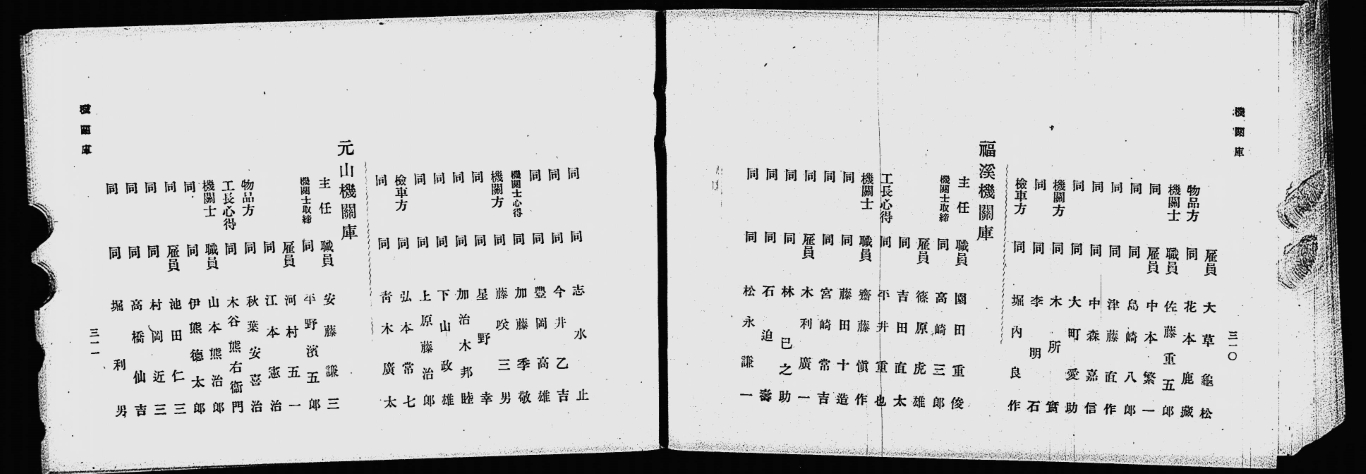 機關庫
三一〇
雇員 大草龜松
物品方 同 花本鹿藏
機關士 職員 佐藤重五郎
同 雇員 中本繁一
同 同 島崎八郎
同 同 津藤直作
同 同 中森嘉信
同 同 大町愛助
機關方 同 木所實
同 同 李明石
檢車方 同 堀內良作
福溪機關庫
主任 職員 園田重俊
機關士取締 同 高崎三郎
雇員 篠原虎雄
同 吉田直太
工長心得 同 平井重也
機關士 職員 齋藤愼作
同 同 藤田十造
同 同 宮崎常吉
同 雇員 木利廣一
同 同 林巳之助
同 同 石迫壽
同 同 松永謙一
同 同 志水止
同 同 今井乙吉
同 同 豐岡高雄
機關士心得 同 加藤季敬
機關方 同 藤咲三男
同 同 星野幸
同 同 加治木邦睦
同 同 下山政雄
同 同 上原藤治郎
檢車方 同 弘本常七
同 同 靑木廣太
元山機關庫
主任 職員 安藤謙三
機關士取締 同 平野濱五郎
雇員 河村五一
同 江本憲治
物品方 同 秋葉安喜治
工長心得 同 木谷熊右衞門
機關士 職員 山本熊治郎
同 同 伊熊德太郎
同 雇員 池田仁三
同 同 村岡近三
同 同 高橋仙吉
同 同 堀利男
機關庫
三一一